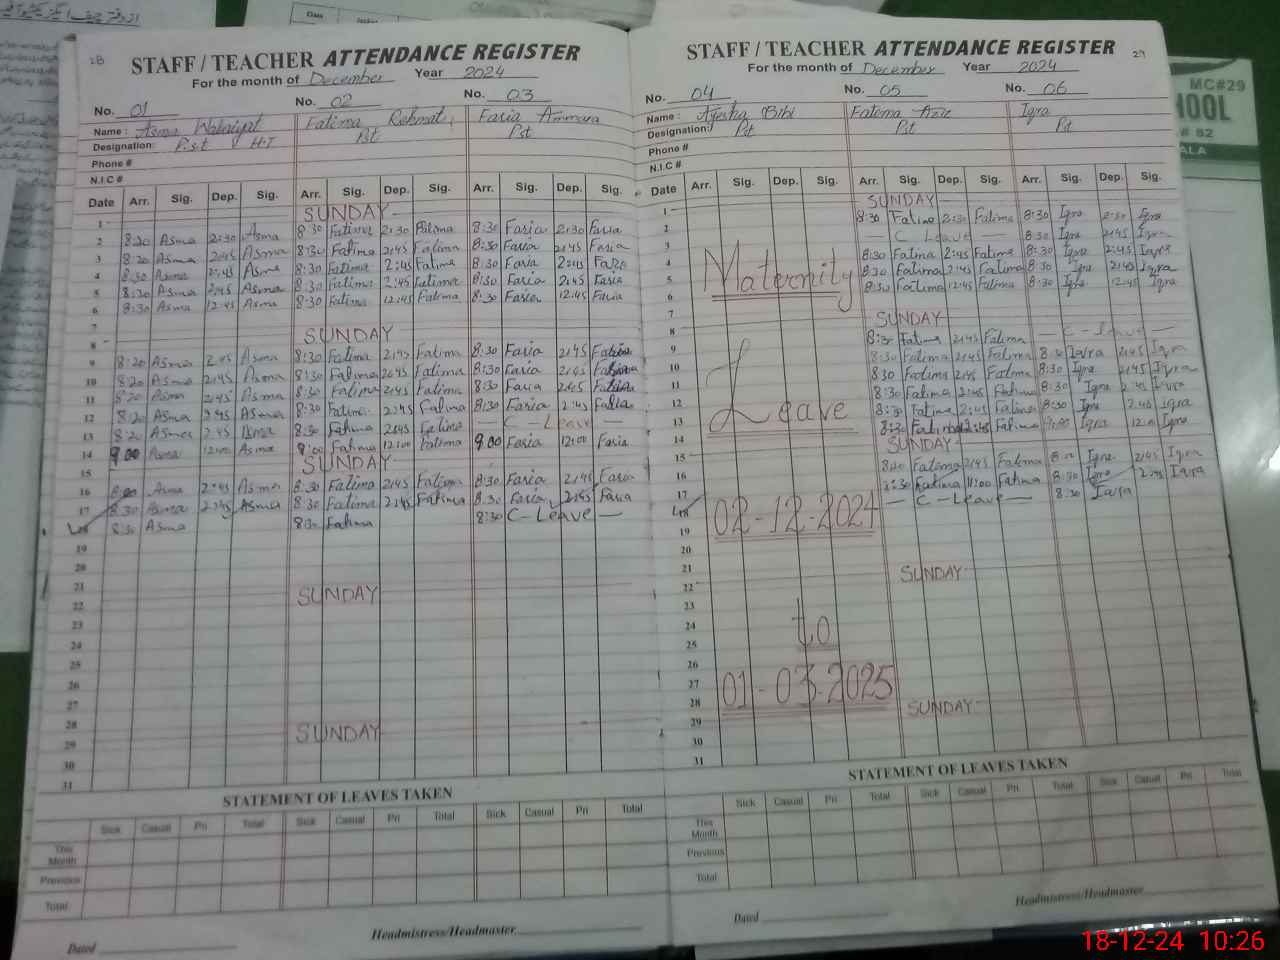 28
STAFF / TEACHER ATTENDANCE REGISTER
For the month of December Year 2024
No. 01 No. 02 No. 03
Name : Asma Walaiyat Fatima Rehmat Faria Ammara
Designation: P.s.t H.T Pst Pst
Phone #
N.I.C #
Date Arr. Sig. Dep. Sig. Arr. Sig. Dep. Sig. Arr. Sig. Dep. Sig.
1 SUNDAY
2 8:20 Asma 2:30 Asma 8:30 Fatima 2:30 Fatima 8:30 Faria 2:30 Faria
3 8:20 Asma 2:45 Asma 8:30 Fatima 2:45 Fatima 8:30 Faria 2:45 Faria
4 8:30 Asma 2:45 Asma 8:30 Fatima 2:45 Fatima 8:30 Faria 2:45 Faria
5 8:20 Asma 2:45 Asma 8:30 Fatima 2:45 Fatima 8:30 Faria 2:45 Faria
6 8:30 Asma 12:45 Asma 8:30 Fatima 12:45 Fatima 8:30 Faria 12:45 Faria
7
8 SUNDAY
9 8:20 Asma 2:45 Asma 8:30 Fatima 2:45 Fatima 8:30 Faria 2:45
10 8:20 Asma 2:45 Asma 8:30 Fatima 2:45 Fatima 8:30 Faria 2:45
11 8:20 Asma 2:45 Asma 8:30 Fatima 2:45 Fatima 8:30 Faria 2:45
12 8:20 Asma 2:45 Asma 8:30 Fatima 2:45 Fatima 8:30 Faria 2:45 Faria
13 8:20 Asma 2:45 Asma 8:30 Fatima 2:45 Fatima — C - Leave —
14 9:00 Asma 12:00 Asma 9:00 Fatima 12:00 Fatima 9:00 Faria 12:00 Faria
15 SUNDAY
16 Asma 2:45 Asma 8:30 Fatima 2:45 Fatima 8:30 Faria 2:45 Faria
17 8:30 Asma 2:45 Asma 8:30 Fatima 2:45 Fatima 8:30 Faria 2:45 Faria
18 8:30 Asma 8:30 Fatima 8:30 C - Leave —
19
20
21
22 SUNDAY
23
24
25
26
27
28
29 SUNDAY
30
31
STATEMENT OF LEAVES TAKEN
Sick Casual Pri Total Sick Casual Pri Total Sick Casual Pri Total
This Month
Previous
Total
Dated Headmistress/Headmaster
29
STAFF / TEACHER ATTENDANCE REGISTER
For the month of December Year 2024
No. 04 No. 05 No. 06
Name : Ayesha Bibi Fatima Aziz Iqra
Designation: Pst Pst Pst
Phone #
N.I.C #
Date Arr. Sig. Dep. Sig. Arr. Sig. Dep. Sig. Arr. Sig. Dep. Sig.
1 SUNDAY
2 8:30 Fatima 2:30 Fatima 8:30 Iqra 2:30 Iqra
3 — C Leave — 8:30 Iqra 2:45 Iqra
4 Maternity 8:30 Fatima 2:45 Fatima 8:30 Iqra 2:45 Iqra
5 8:30 Fatima 2:45 Fatima 8:30 Iqra 2:45 Iqra
6 8:30 Fatima 12:45 Fatima 8:30 Iqra 12:45 Iqra
7
8 SUNDAY
9 8:30 Fatima 2:45 Fatima — C - Leave —
10 8:30 Fatima 2:45 Fatima 8:30 Iqra 2:45 Iqra
11 8:30 Fatima 2:45 Fatima 8:30 Iqra 2:45 Iqra
12 Leave 8:30 Fatima 2:45 Fatima 8:30 Iqra 2:45 Iqra
13 8:30 Fatima 2:45 Fatima 8:30 Iqra 2:45 Iqra
14 Fatima Fatima 9:00 Iqra 12:00 Iqra
15 SUNDAY
16 Fatima 2:45 Fatima Iqra 2:45 Iqra
17 8:30 Fatima Fatima 8:30 Iqra 2:45 Iqra
18 02-12-2024 — C - Leave — 8:30 Iqra
19
20
21
22 SUNDAY
23
24 to
25
26
27 01-03-2025
28
29 SUNDAY
30
31
STATEMENT OF LEAVES TAKEN
Sick Casual Pri Total Sick Casual Pri Total Sick Casual Pri Total
This Month
Previous
Total
Dated Headmistress/Headmaster
MC#29
# 82
18-12-24 10:26